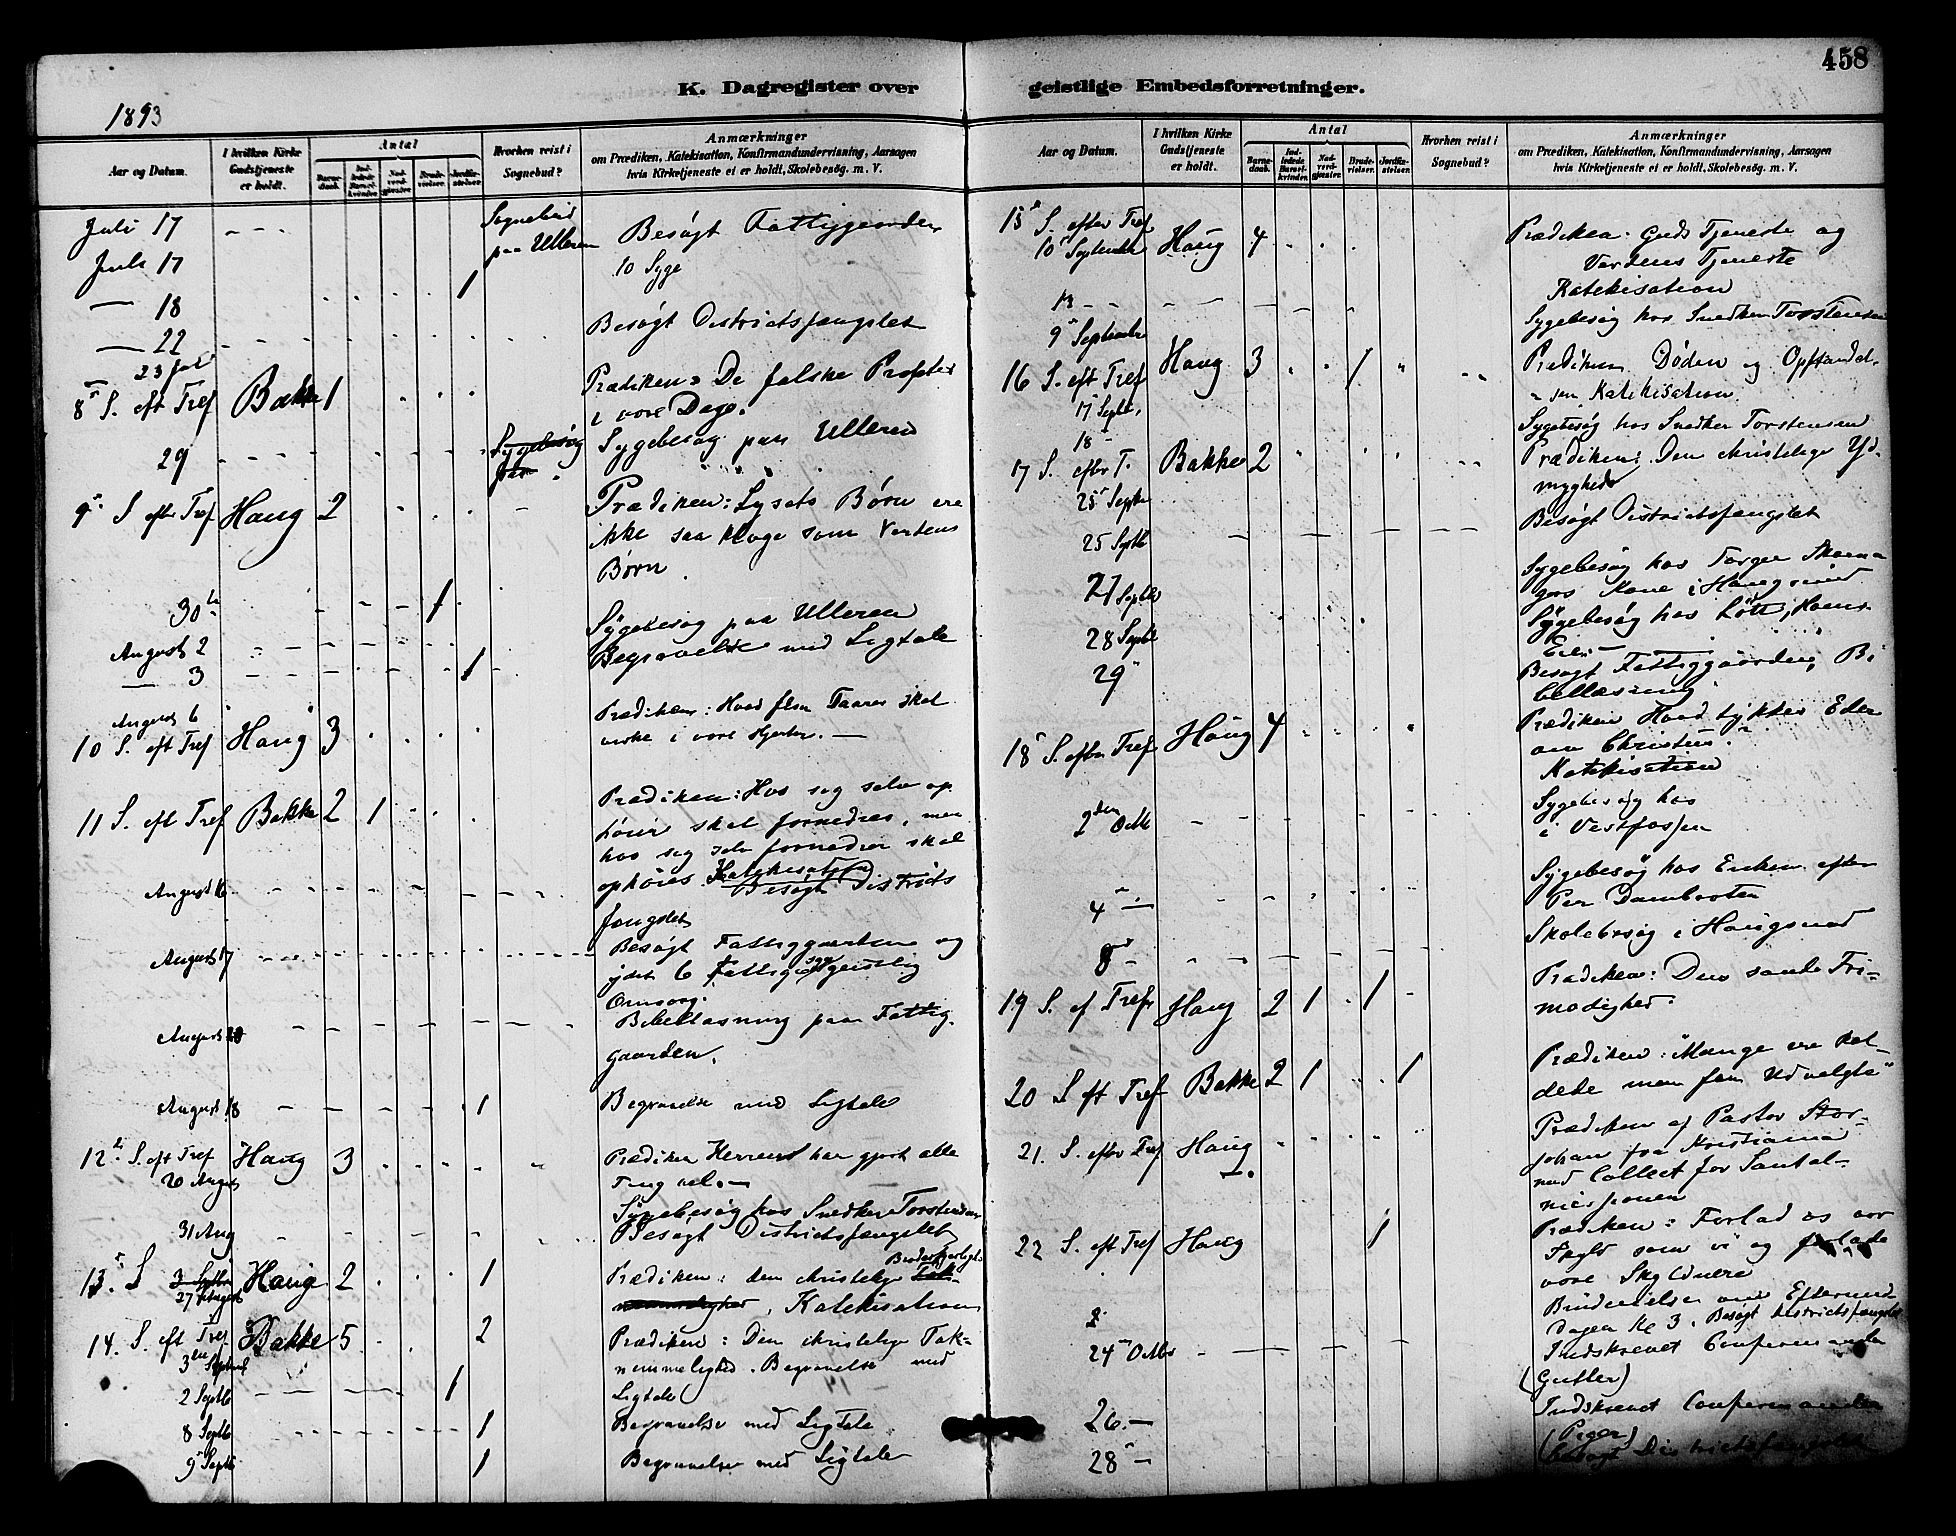 458
K. Dagregister over geistlige Embedsforretninger.
1893
Aar og Datum.
I hvilken Kirke Gudstjeneste er holdt.
Antal
Barnedaab.
Indledede Barselkvinder.
Nadverdgjester.
Brudevielser.
Jordfæstelser.
Hvorhen reist i Sognebud?
Anmærkninger
om Prædiken, Katekisation, Konfirmandundervisning, Aarsagen
hvis Kirketjeneste ei er holdt, Skolebesøg. m. V.
Juli 17 Sognebud paa Ulleren Besøgt Fattiggaarden
Juli 17 1 10 Syge
18 Besøgt Districtsfængslet
22
23 Juli
8 S. eft Tref Bakke 1 Prædiken: De falske Profeter
i vore Dage.
29 Sygebesøg paa Sygebesøg paa Ulleren
9 S efter Tref Haug 2 Prædiken: Lysets Børn ere
ikke saa kloge som Verdens
Børn
30 1
August 2 Sygebesøg paa Ulleren
3 1 Begravelse med Ligtale
August 6
10 S. eft Tref Haug 3 Prædiken: Hvad Taarer skal
virke i vore Hjerter.
11 S. eft Tref Bakke 2 1 Prædiken: Hvo sig selv op
høier skal fornedres, men
hvo sig selv fornedrer skal
ophøies Katekisation
August 16 Besøgt Districts
fængslet
August 17 Besøgt Fattiggaarden og
ydet 6 Fattige geistlig
Omsorg.
August Bibellæsning paa Fattig
gaarden.
August 18 1 Begravelse med Ligtale
12 S. eft Tref Haug 3 Prædiken Herren har gjort alle
20 August Ting vel.
Sygebesøg hos Snedker Torstensen
31 Aug Besøgt Districtsfængslet
13 S 3 Septbr Haug 2 1 Prædiken: den christelige Tak-
27 August nemmelighed, Katekisation
14. S. eft Tref Bakke 5 2 Prædiken: Den christelige Tak-
3 Septemb nemmelighed. Begravelse med
2 Septb 1 Ligtale
8 Septb 1 Begravelse med Ligtale
9 Septb 1 Begravelse med Ligtale
Aar og Datum.
I hvilken Kirke Gudstjeneste er holdt.
Antal
Barnedaab.
Indledede Barselkvinder.
Nadverdgjester.
Brudevielser.
Jordfæstelser.
Hvorhen reist i Sognebud?
Anmærkninger
om Prædiken, Katekisation, Konfirmandundervisning, Aarsagen
hvis Kirketjeneste ei er holdt, Skolebesøg. m. V.
15 S. efter Tref
10 September Haug 4 Prædiken: Guds Tjeneste og
Verdens Tjeneste
Katekisation
Sygebesøg hos Snedker Torstensen
9 September
16 S. eft Tref Haug 3 1 Prædiken Døden og Opstandel-
sen Katekisation
17 Septb.
18 Sygebesøg hos Snedker Torstensen
17 S. efter T. Bakke 2 Prædiken: Den christelige Yd-
myghed
25 Septb Besøgt Districtsfængslet
27 Septb Sygebesøg hos
Kone i Haugsund
28 Septb Sygebesøg hos
29 Besøgt Fattiggaarden, Bi
bellæsning
18 S. efter Tref Haug 4 Prædiken Hvad tykkes Eder
om Christus?
Katekisation
2den Octb Sygebesøg hos
i Vestfossen
4 Sygebesøg hos Enken efter
Per
8 Skolebesøg i Haugsund
19 S. ef Tref Haug 2 1 1 Prædiken: Den sande Fri-
modighed.
20 S eft Tref Bakke 2 1 1 Prædiken: "Mange ere kal-
dede men faa Udvalgte"
21. S. efter Tref Haug Prædiken af Pastor Stor-
johan fra Kristiania
med Collect for Santal-
missionen
22 S. eft Tref Haug 1 Prædiken: Forlad os vor
Skyld som vi og forlade
vore Skyldnere
Brudevielse om Eftermid-
dagen Kl 3. Besøgt Districtsfængslet
24 Octbr Indskrevet Confirmander
(Gutter)
26 Indskrevet Confirmander
(Piger)
28 Besøgt Districtsfængslet